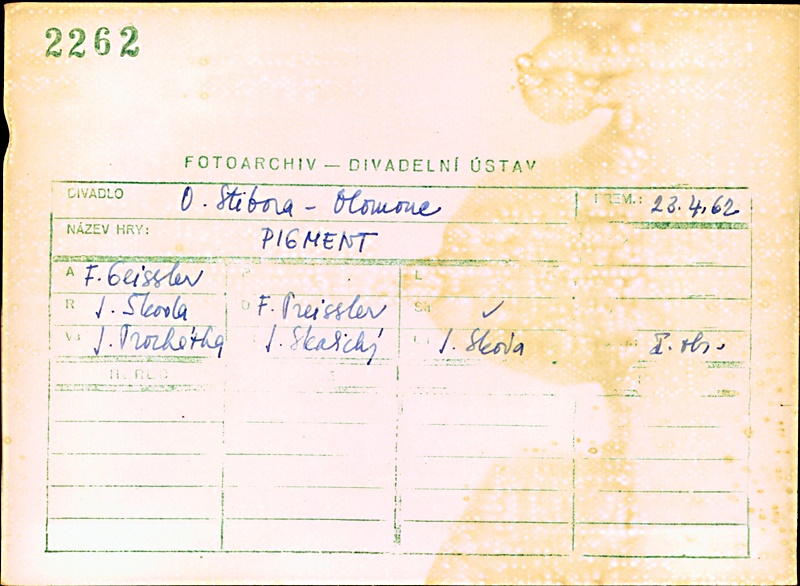 2262
FOTOARCHIV — DIVADELNÍ ÚSTAV
DIVADLO O. Stibora - Olomouc PREM.: 23.4.62
NÁZEV HRY: PIGMENT
A F. Geissler P L
R J. Škoda D F. Preissler Sm
J. Procházka J. Skalický J. Škoda I. obs.